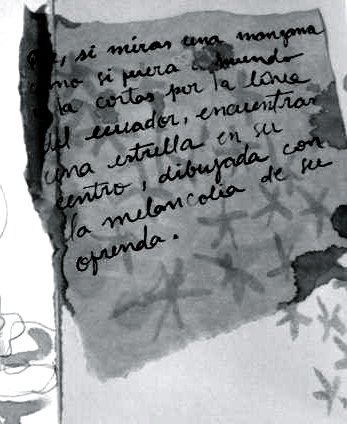 si miras una manzana
como si fuera el mundo
la cortas por la línea
del ecuador, encuentras
una estrella en su
centro, dibujada con
la melancolía de su
ofrenda.